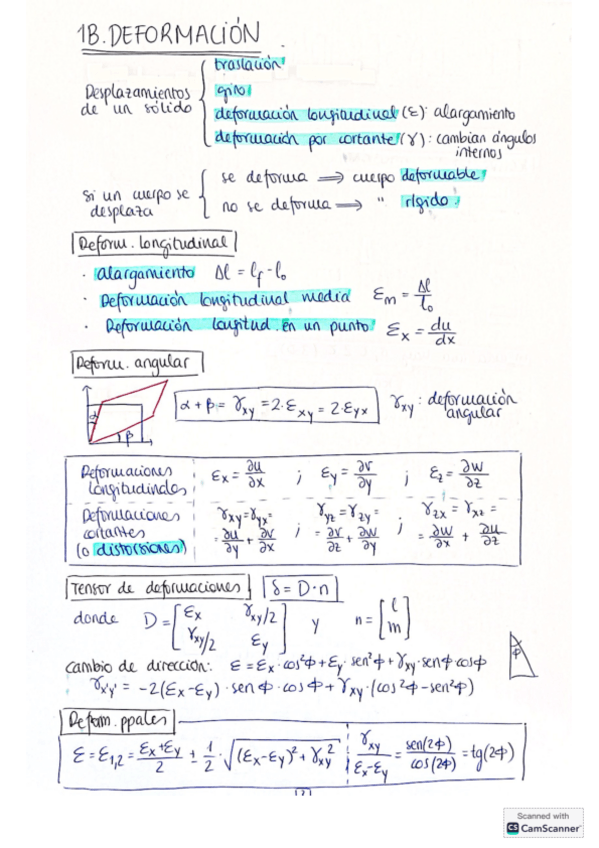 1B. DEFORMACIÓN
Desplazamientos de un sólido { traslación
giro
deformación longitudinal (ε): alargamiento
deformación por cortante (γ): cambian ángulos internos
Si un cuerpo se desplaza { se deforma ⟹ cuerpo deformable
no se deforma ⟹ " rígido.
Deform. longitudinal
· alargamiento Δl = lf - lo
· Deformación longitudinal media εm = Δl/lo
· Deformación longitud. en un punto εx = du/dx
Deform. angular
α β
α + β = γxy = 2·εxy = 2·εyx
γxy : deformación angular
Deformaciones longitudinales εx = ∂u/∂x ; εy = ∂v/∂y ; εz = ∂w/∂z
Deformaciones cortantes (o distorsiones) γxy = γyx = = ∂u/∂y + ∂v/∂x ; γyz = γzy = = ∂v/∂z + ∂w/∂y ; γzx = γxz = = ∂w/∂x + ∂u/∂z
Tensor de deformaciones δ = D·n
donde D = [εx γxy/2
γxy/2 εy] y n = [l
m]
cambio de dirección: ε = εx·cos²φ + εy·sen²φ + γxy·senφ cosφ
φ
γx'y' = -2(εx-εy)·senφ·cosφ + γxy·(cos²φ-sen²φ)
Deform. ppales
ε = ε1,2 = εx+εy/2 ± 1/2·√(εx-εy)² + γxy² γxy/εx-εy = sen(2φ)/cos(2φ) = tg(2φ)
Scanned with
CS CamScanner